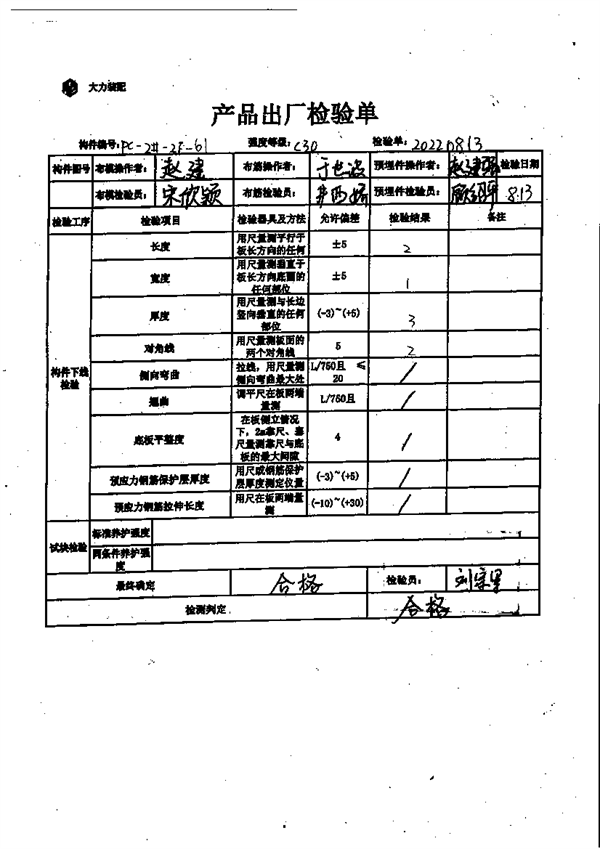 大力装配
产品出厂检验单
构件编号: PC-2#-2F-61 强度等级: C30 检验单: 20220813
构件图号 布模操作者: 赵建 布筋操作者: 预埋件操作者: 赵建强 检验日期
布模检验员: 宋欣颖 布筋检验员: 预埋件检验员: 8.13
检验工序 检验项目 检验器具及方法 允许偏差 检验结果 备注
构件下线检验
长度 用尺量测平行于板长方向的任何 ±5 2
宽度 用尺量测垂直于板长方向底面的任何部位 ±5 1
厚度 用尺量测与长边竖向垂直的任何部位 (-3)~(+5) 3
对角线 用尺量测板面的两个对角线 5 2
侧向弯曲 拉线，用尺量测侧向弯曲最大处 L/750且 ≤20 /
翘曲 调平尺在板两端量测 L/750且 /
底板平整度 在板侧立情况下，2m靠尺、塞尺量测靠尺与底板的最大间隙 4 /
预应力钢筋保护层厚度 用尺或钢筋保护层厚度测定仪量 (-3)~(+5) /
预应力钢筋拉伸长度 用尺在板两端量测 (-10)~(+30) /
试块检验 标准养护强度
同条件养护强度
最终确定 合格 检验员:
检测判定 合格